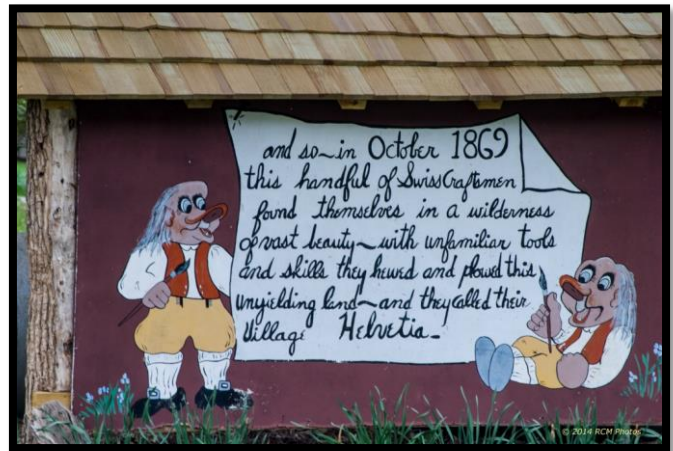 and so~in October 1869
this handful of Swiss Craftsmen
found themselves in a wilderness
of vast beauty~with unfamiliar tools
and skills they hewed and plowed this
unyielding land~and they called their
Village Helvetia-
© 2014 RCM Photos